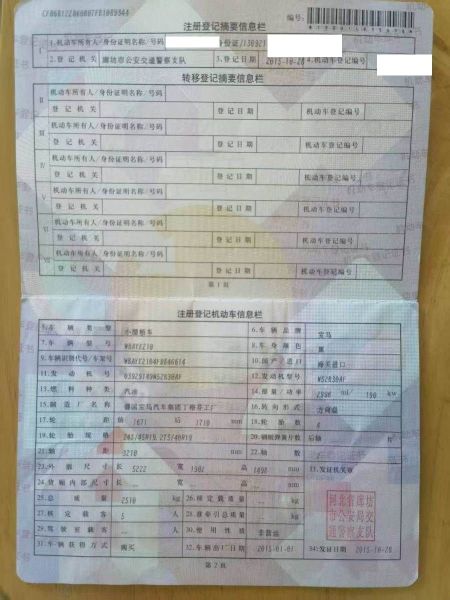 编号:
注册登记摘要信息栏
I 1.机动车所有人/身份证明名称/号码 身份证/130921
2.登记机关 廊坊市公安交通警察支队 3.登记日期 2015-10-28 4.机动车登记编号
转移登记摘要信息栏
II 机动车所有人/身份证明名称/号码
登记机关 登记日期 机动车登记编号
III 机动车所有人/身份证明名称/号码
登记机关 登记日期 机动车登记编号
IV 机动车所有人/身份证明名称/号码
登记机关 登记日期 机动车登记编号
V 机动车所有人/身份证明名称/号码
登记机关 登记日期 机动车登记编号
VI 机动车所有人/身份证明名称/号码
登记机关 登记日期 机动车登记编号
VII 机动车所有人/身份证明名称/号码
登记机关 登记日期 机动车登记编号
第1页
注册登记机动车信息栏
5.车辆类型 小型轿车 6.车辆品牌 宝马
7.车辆型号 8.车身颜色 黑
9.车辆识别代号/车架号 10.国产/进口
11.发动机号 12.发动机型号 N52B30AF
13.燃料种类 汽油 14.排量/功率 2996 ml/ 190 kw
15.制造厂名称 德国宝马汽车集团丁格芬工厂 16.转向形式 方向盘
17.轮距 前 1671 后 1710 mm 18.轮胎数 4
19.轮胎规格 245/45R19,275/40R19 20.钢板弹簧片数 后轴
21.轴距 3210 mm 22.轴数 2
23.外廓尺寸 长 5222 宽 1902 高 1498 mm 33.发证机关章
24.货厢内部尺寸 长 宽 高 mm
25.总质量 2510 kg 26.核定载质量 kg
27.核定载客 5 人 28.准牵引总质量 kg
29.驾驶室载客 人 30.使用性质 非营运
河北省廊坊
市公安局交
通警察支队
31.车辆获得方式 购买 32.车辆出厂日期 2015-01-01 34.发证日期 2015-10-28
第2页